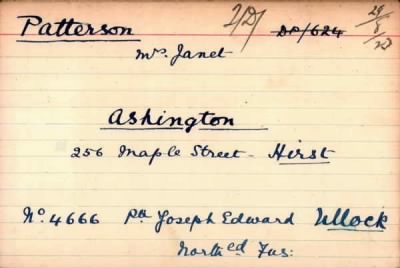 Patterson 2/D/ DP/624 29/8/
Mrs. Janet
Ashington
256 Maple Street - Hirst
No. 4666 Pte Joseph Edward Ullock
North'ed Fus: